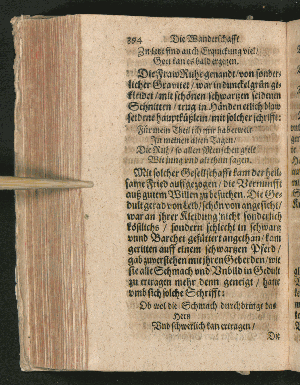 394 Die Wanderschafft
Zu letzt sind auch Erquickung viel/
Gott kan es bald ergetzen.
Die Fraw Ruhe genandt/ von sonder-
licher Gravitet/ war in dunckelgrün ge-
kleidet/ mit schönen schwartzen seidenen
Schnitten/ trug in Händen etlich blaw
seidene hauptküßlein/ mit solcher schrifft:
Für mein Theil ich mir hab erwelt
In meinen alten Tagen/
Die Ruh/ so allen Menschen gfelt
Wie jung und alt thun sagen.
Mit solcher Gesellschafft kam der heil-
same Fried auffgezogen/ die Vernunfft
auß gutem Willen zu besuchen. Die Ge-
dult gerad von Leib/ schön von angesicht/
war an ihrer Kleidung nicht sonderlich
köstlichs/ sondern schlecht in schwartz
unnd Barchet gefüttert angethan/ kam
geritten auff einem schwartzen Pferd/
gab zuverstehen mit ihren Geberden/ wie
sie alle Schmach und Unbild in Gedult
zu ertragen mehr denn geneigt/ hatte
umb sich solche Schrifft:
Ob wol die Schmach durchdringt das
Hertz
Und schwerlich kan ertragen/
Die